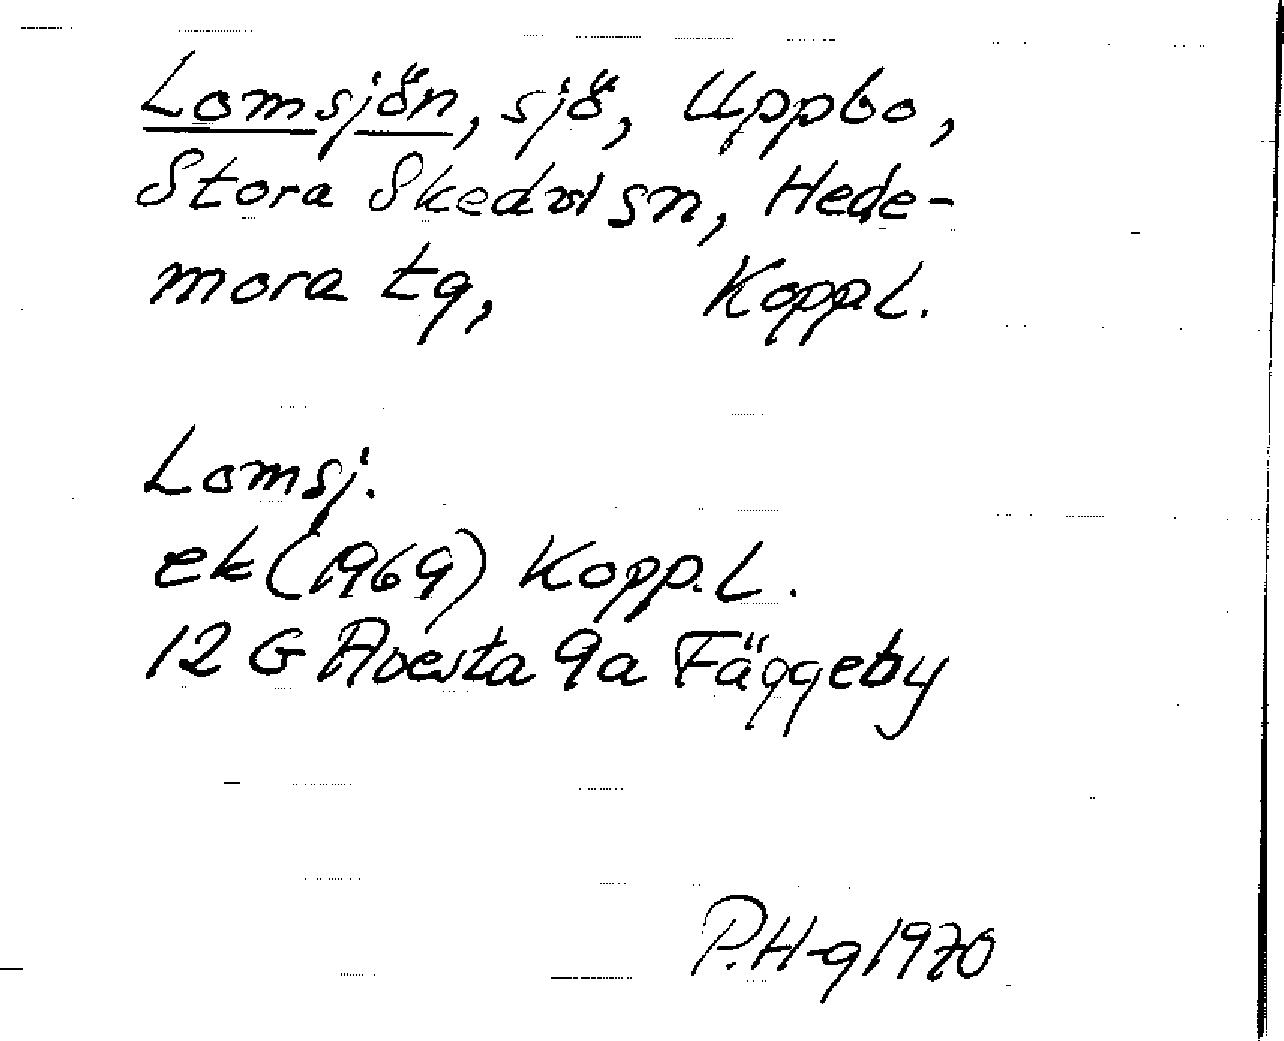 Lomsjön, sjö, Uppbo,
Stora Skedvi sn, Hede-
mora tg, Kopp.l.
Lomsj.
ek (1969) Kopp.L.
12 G Avesta 9a Fäggeby
P.H-g 1970